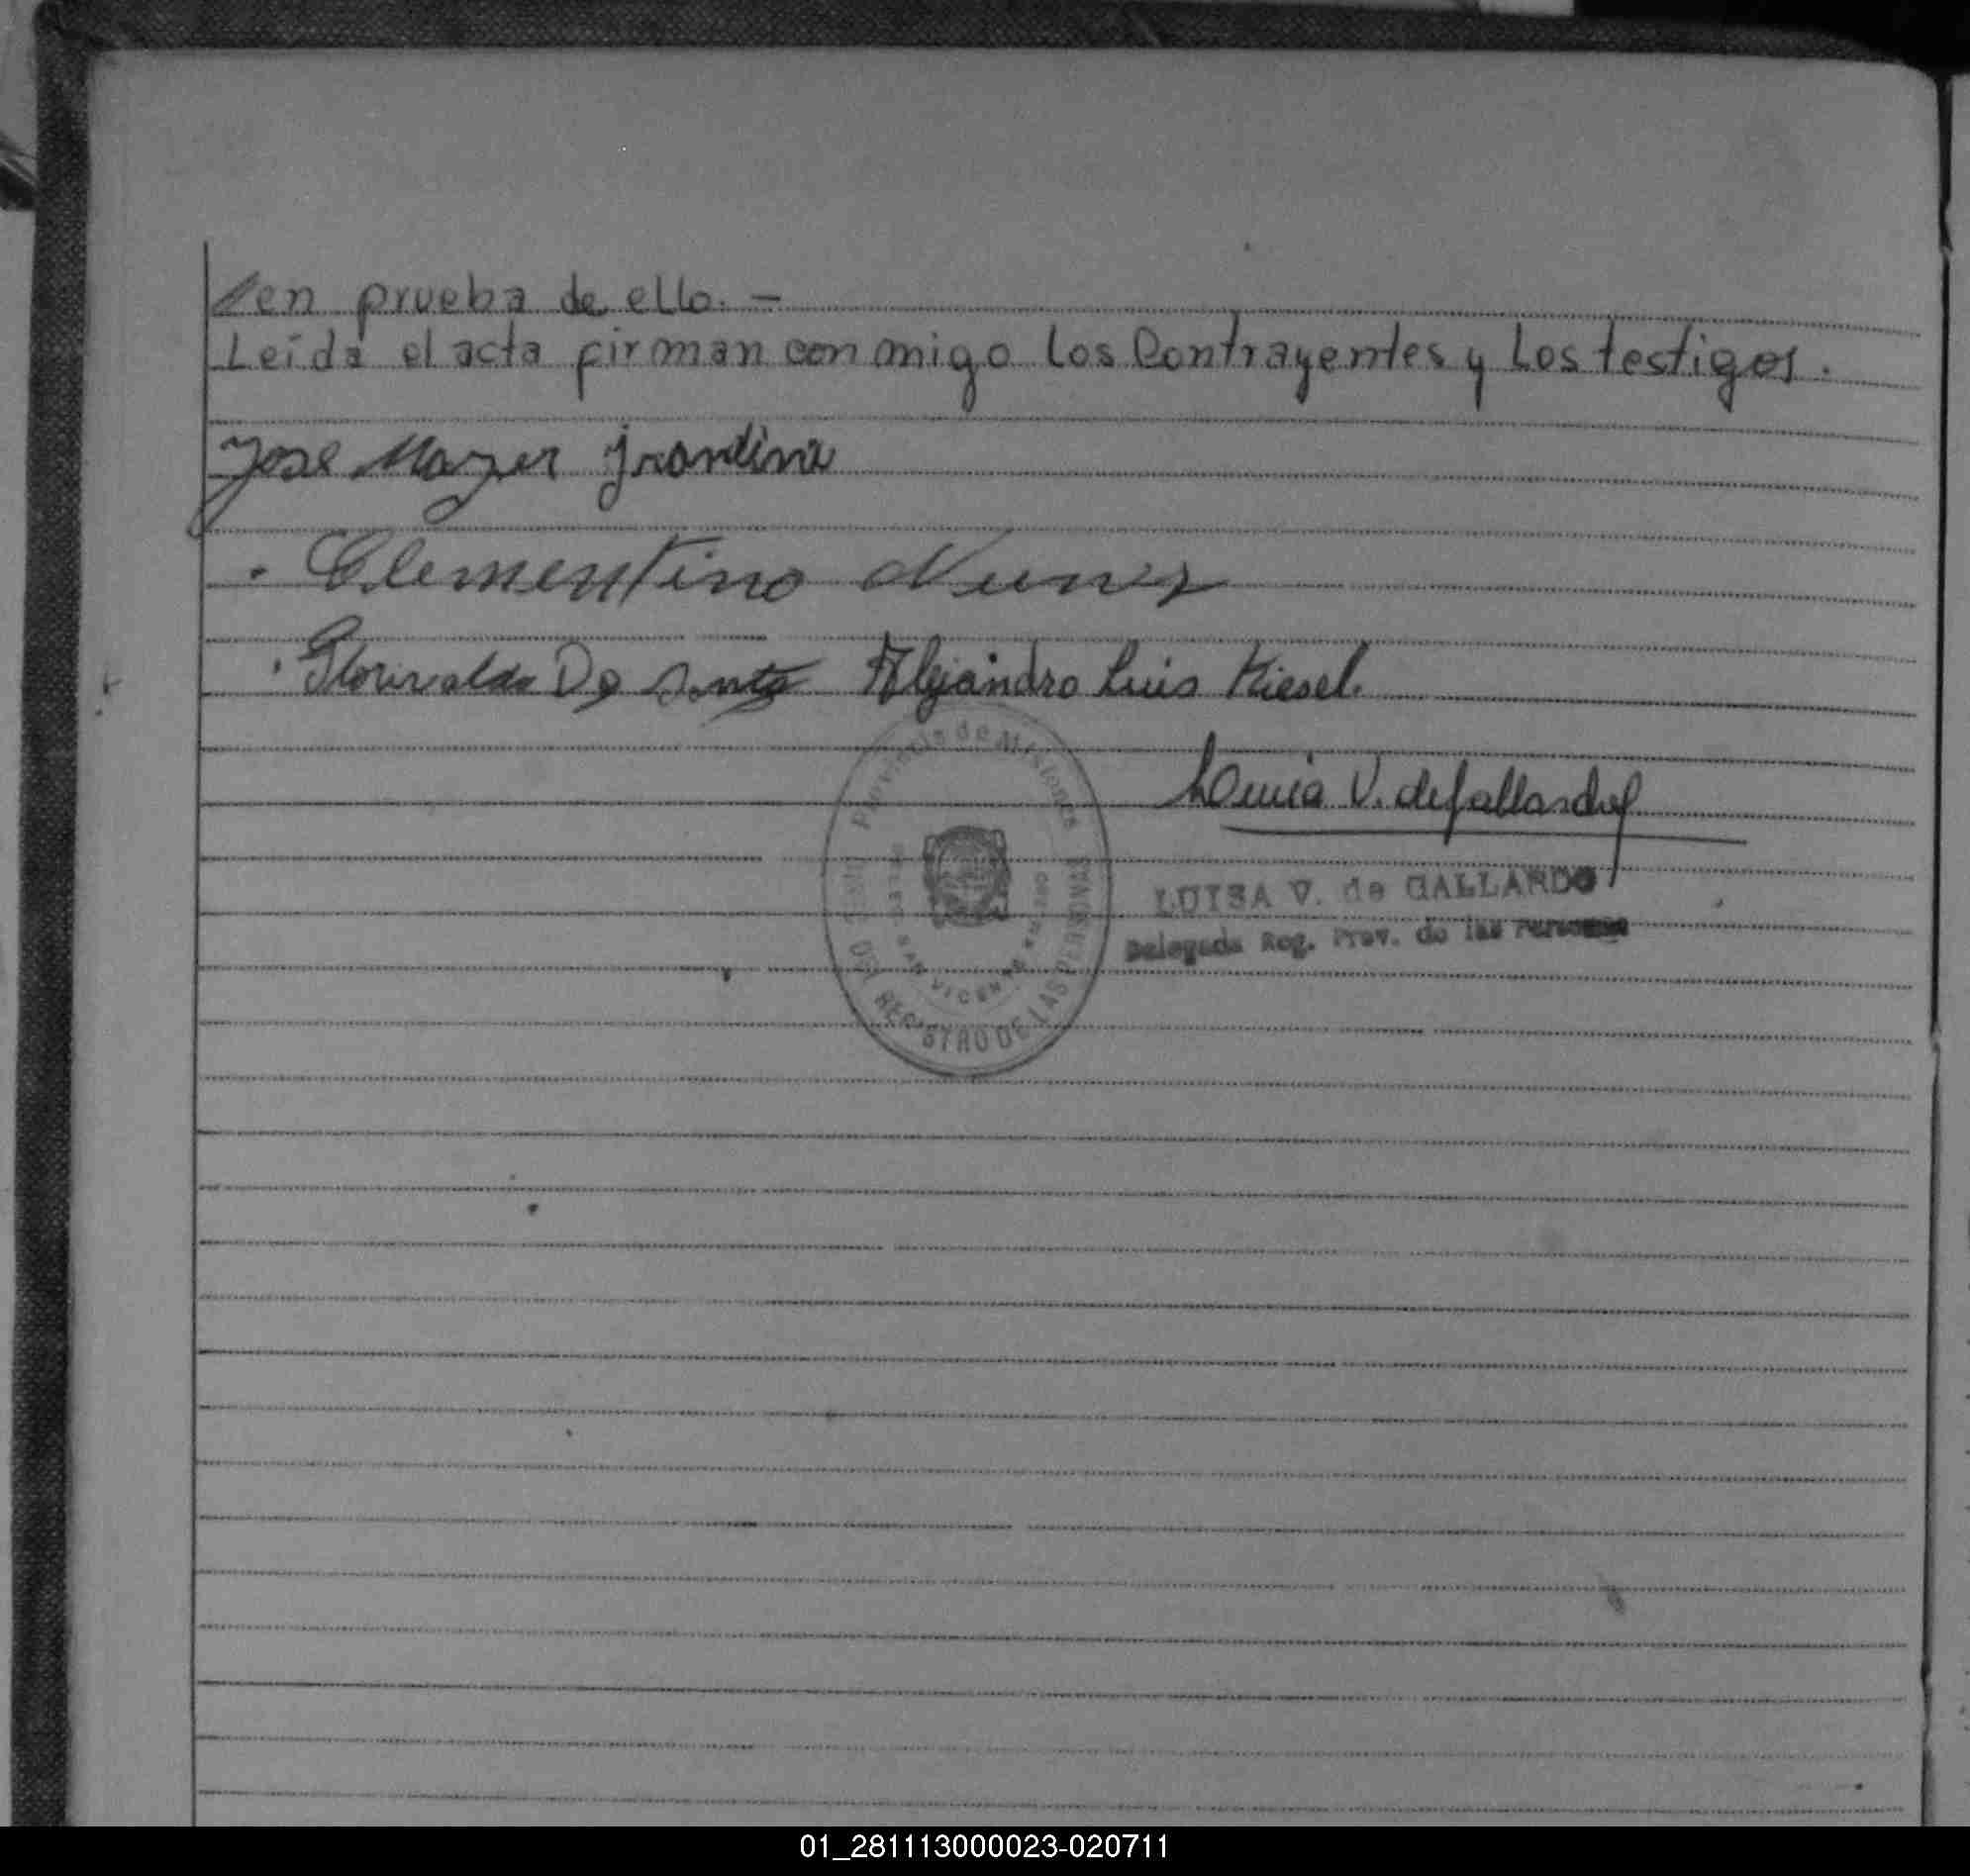 en prueba de ello. —
Leída el acta firman con migo los Contrayentes y Los testigos.
Jose Mazer
Clementino Nunes
De Alejandro Luis Kiesel.
Luisa V. de Gallardo
Provincia de Misiones
DEL REGISTRO DE LAS PERSONAS
SAN VICENTE
LUISA V. de GALLARDO
Delegada Reg. Prov. de las Personas
01_281113000023-020711